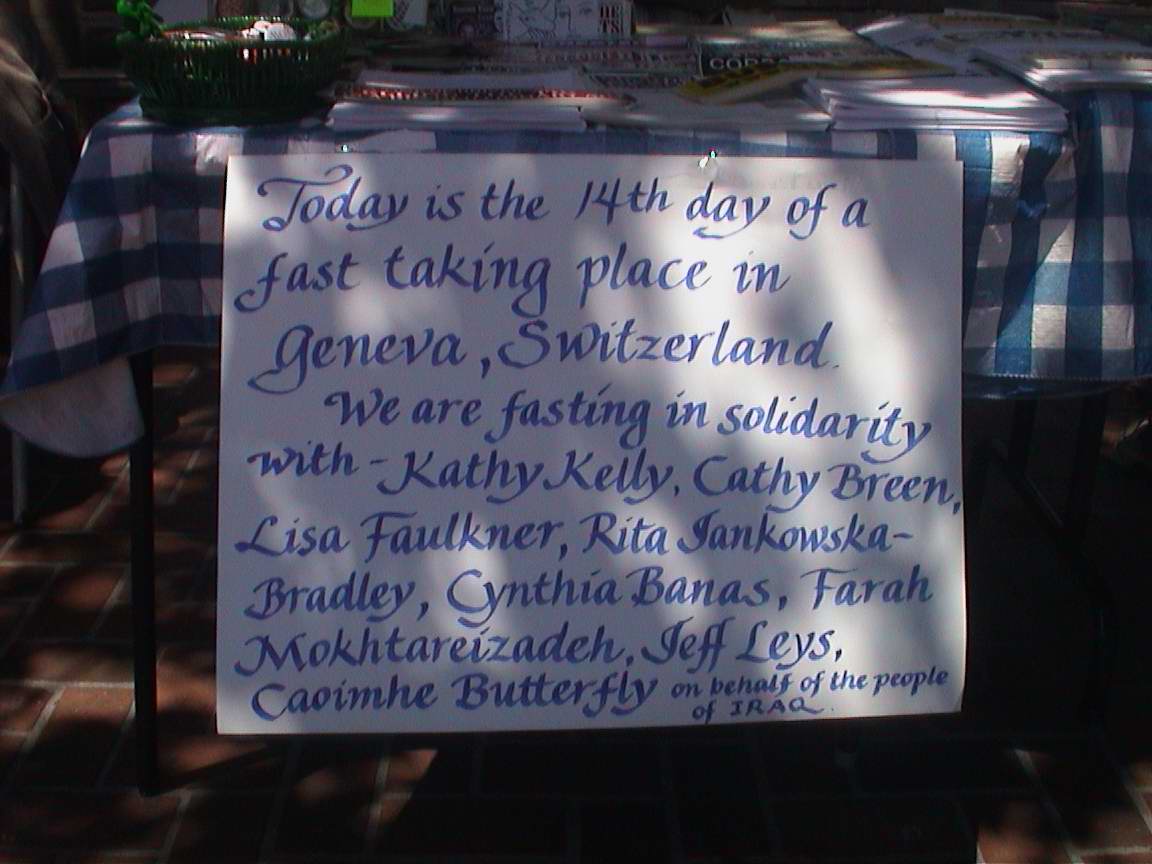 CORPO
Today is the 14th day of a
fast taking place in
Geneva, Switzerland.
We are fasting in solidarity
with - Kathy Kelly, Cathy Breen,
Lisa Faulkner, Rita Jankowska-
Bradley, Cynthia Banas, Farah
Mokhtareizadeh, Jeff Leys,
Caoimhe Butterfly on behalf of the people
of IRAQ.